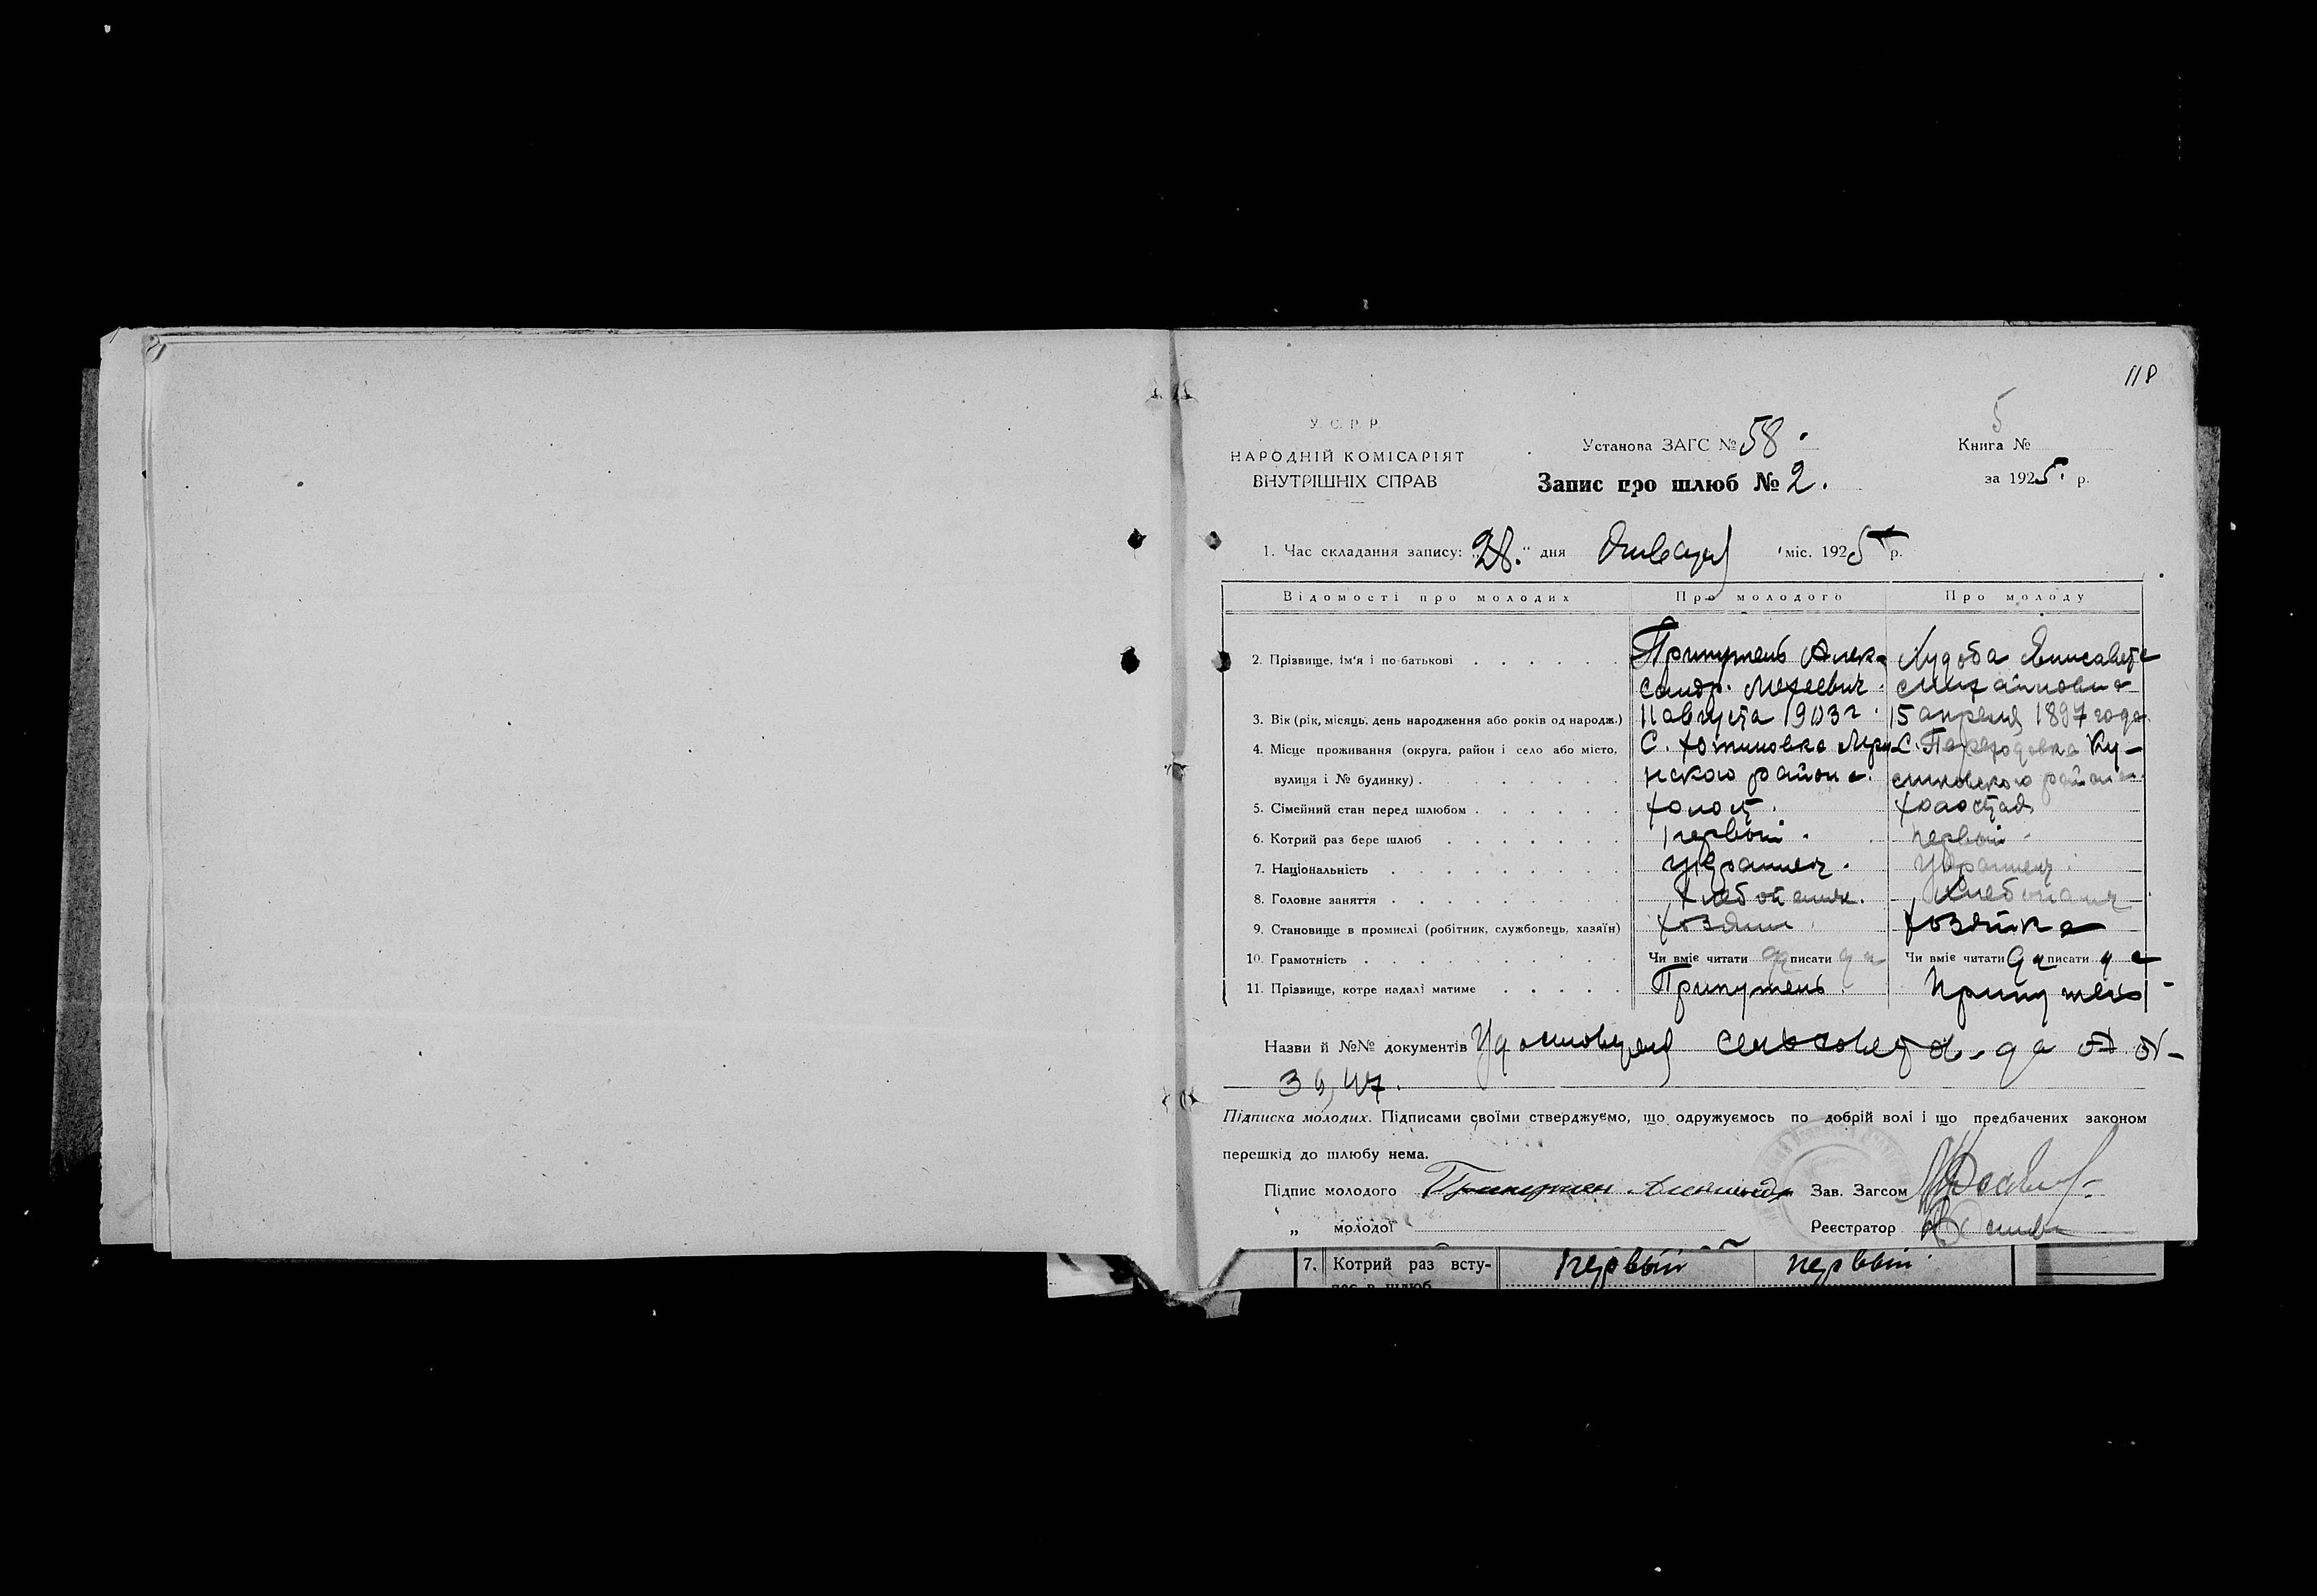 118
У. С. Р. Р.
НАРОДНІЙ КОМІСАРІЯТ
ВНУТРІШНІХ СПРАВ
Установа ЗАГС № 58.
Запис про шлюб № 2.
5
Книга №
за 1925. р.
1. Час складання запису: „28.“ дня Января міс. 1925 р.
Відомості про молодих Про молодого Про молоду
2. Прізвище, ім'я і по-батькові . . . . . . Припутень Алек- Худоба Елисавета
сандр. Мохеевич. Михайловна
3. Вік (рік, місяць, день народження або років од народж.) 11 августа 1903 г. 15 апреля 1897 года.
4. Місце проживання (округа, район і село або місто, С. Хотиновка С. Переходовка
вулиця і № будинку) . . . . . . нского района. района.
5. Сімейний стан перед шлюбом . . . . . . холост. холостая
6. Котрий раз бере шлюб . . . . . . . первый. первый.
7. Національність . . . . . . . . . украинец. Украинец.
8. Головне заняття . . . . . . . . . Хлебопашец. Хлебопашец
9. Становище в промислі (робітник, службовець, хазяїн) хозяин хозяйка
10. Грамотність . . . . . . . . . . Чи вміє читати да писати да Чи вміє читати да писати да
11. Прізвище, котре надалі матиме . . . . . Припутень. Припутень
Назви й №№ документів Удостоверения сельсовета да №№
36, 47.
Підписка молодих. Підписами своїми стверджуємо, що одружуємось по добрій волі і що предбачених законом
перешкід до шлюбу нема.
Підпис молодого Припутен Зав. Загсом
„ молодої Реєстратор
7. Котрий раз всту- первый первый.